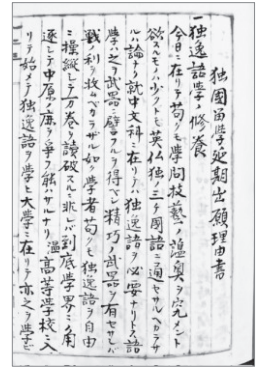 独国留学延期出願理由書
一独逸語学ノ修養
今日ニ在リテ苟クモ学問技藝ノ蘊奥ヲ究メント
欲スルモノハ少クトモ英仏独ノ三ヶ国語ニ通セサルヘカラサ
ルハ論ナク就中文科ニ在リテハ独逸語ヲ必要ナリトス語
学ハ之ヲ武器ニ譬フルヲ得ベシ精巧ノ武器ヲ有セサレハ
戦ノ利ヲ収ムベカラサル如ク学者苟クモ独逸語ヲ自由
ニ操縦シテ万巻ヲ読破スルニ非レバ到底学界ニ角
逐シテ中原ノ鹿ヲ争フ能ハサルナリ
高等学校ニ入
リテ始メテ独逸語ヲ学ヒ大学ニ在リテ亦之ヲ学ビ